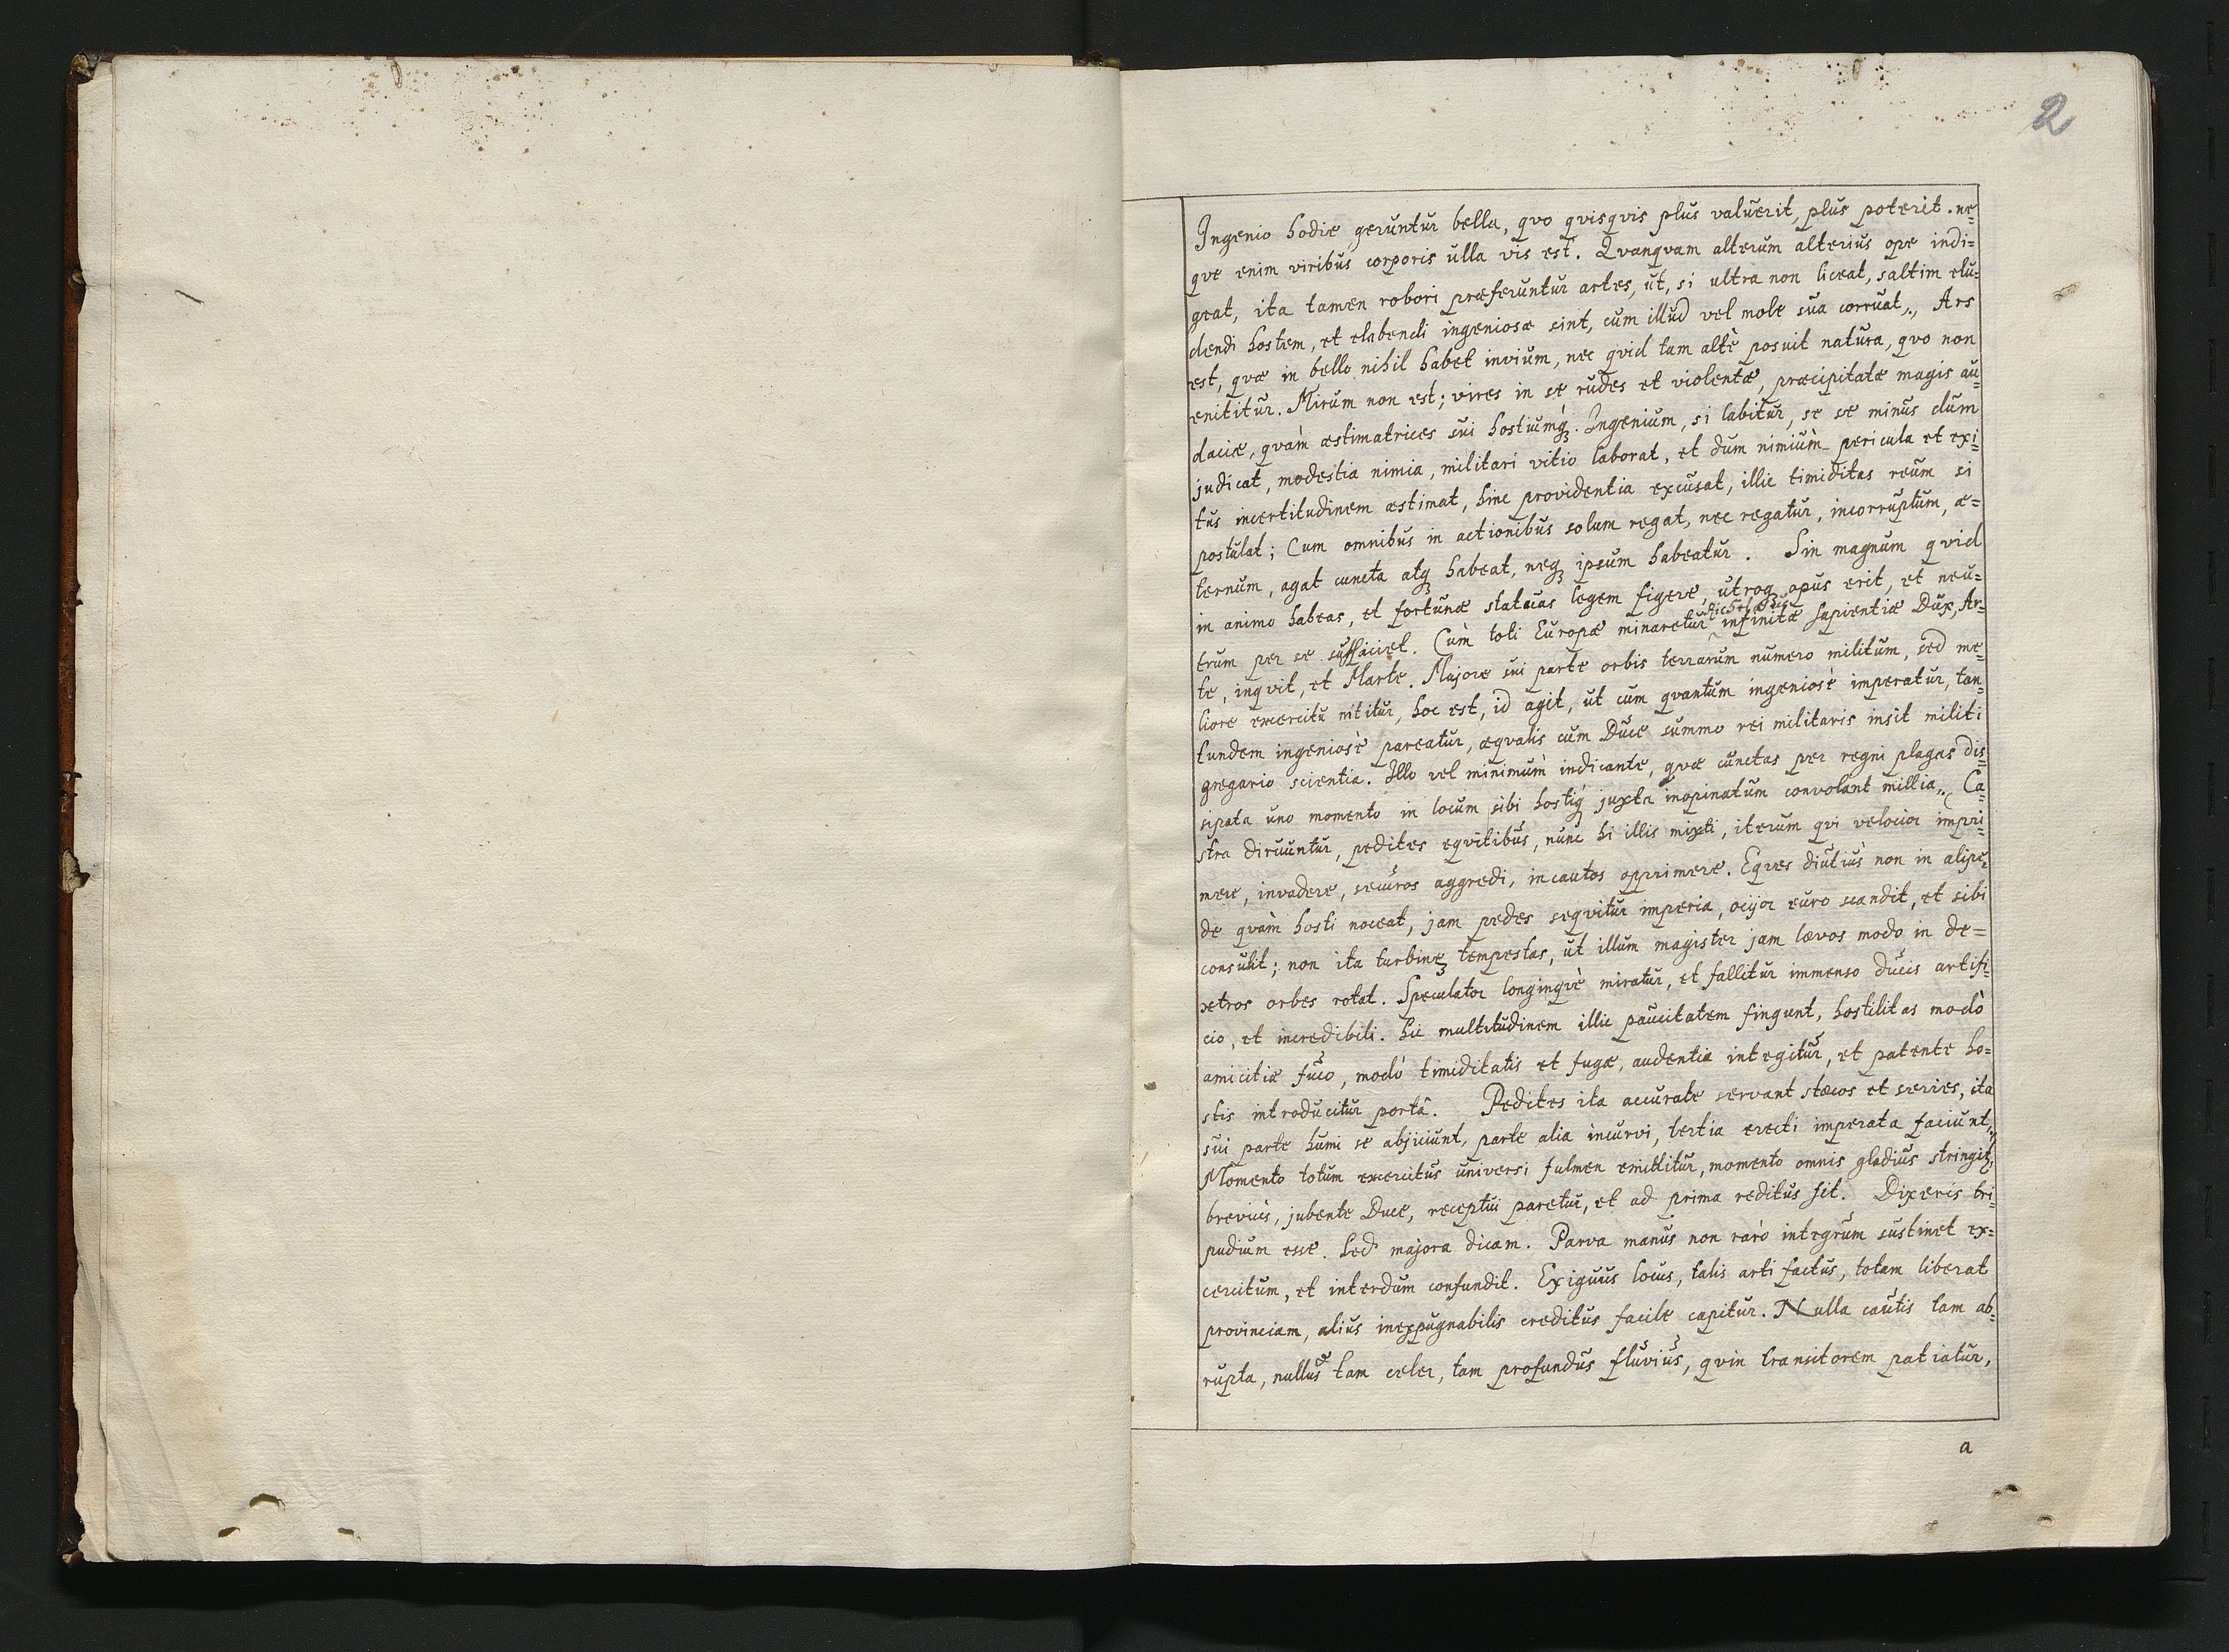 2
Ingenio hodie geruntur bella, qvo qvisqvis plus valuerit, plus poterit. ne=
qve enim viribus corporis ulla vis est. Qvanqvam alterum alterius ope indi=
geat, ita tamen robori præferuntur artes, ut, si ultra non liceat, saltim elu=
dendi hostem, et elabendi ingeniosæ sint, cum illud vel mole sua corruat., Ars
est, qvæ in bello nihil habet invium, nec qvid tam altè posuit natura, qvo non
enititur. Mirum non est; vires in se rudes et violentæ, præcipitatæ magis au=
daciæ, qvàm æstimatrices sui hostiumq́ꝫ. Ingenium, si labitur, se se minus dum
judicat, modestia nimia, militari vitio laborat, et dum nimiùm pericula et exi=
tus incertitudinem æstimat, hinc providentia excusat, illic timiditas reum si
postulat; Cum omnibus in actionibus solum regat, nec regatur, incorruptum, æ=
ternum, agat cuncta atqꝫ habeat, neqꝫ ipsum habeatur. Sin magnum qvid
in animo habeas, et fortunæ statuas legem figere, utroqꝫ opus erit, et neu=
trum per se sufficiet. Cùm toti Europæ minaretur infinitæ sapientiæ Dux, Ar=
te, inqvit, et Marte. Majore sui parte orbis terrarum numero militum, sed me=
liore exercitu nititur, hoc est, id agit, ut cum qvantum ingeniosè imperatur, tan=
tundem ingeniosè pareatur, æqvalis cum Duce summo rei militaris insit militi
gregario scientia. Illo vel minimùm indicante, qvæ cunctas per regni plagas dis=
sipata uno momento in locum sibi hostiq́ꝫ juxta inopinatum convolant millia., Ca=
stra diruuntur, pedites eqvitibus, nunc hi illis mixti, iterum qvi velocior impri=
mere, invadere, securos aggredi, incautos opprimere. Eqves diutiùs non in alipe=
de qvàm hosti noceat, jam pedes seqvitur imperia, ocijor euro scandit, et sibi
consulit; non ita turbineꝫ tempestas, ut illum magister jam lævos modo in de=
xetros orbes rotat. Speculator longinqvè miratur, et fallitur immenso ducis artifi=
cio, et incredibili. Hic multitudinem illic paucitatem fingunt, hostilitas modò
amicitiæ fuco, modò timiditatis et fugæ, audentia integitur, et patente ho=
stis introducitur portâ. Pedites ita accurate servant stæcos et series, ita
sui parte humi se abjiciunt, parte alia incurvi, tertia erecti imperata faciunt.,
Momento totum exercitus universi fulmen emittitur, momento omnis gladius stringitꝫ,
brevius, jubente Duce, receptui paretur, et ad prima reditus fit. Dixeris tri=
pudium esse. Sed majora dicam. Parva manus non rarò integrum sustinet ex=
cercitum, et interdum confundit. Exiguus locus, talis arti factus, totam liberat
provinciam, alius inexpugnabilis creditus facile capitur. Nulla cautis tam ab=
rupta, nullus tam celer, tam profundus fluvius, qvin transitorem patiatur,
a